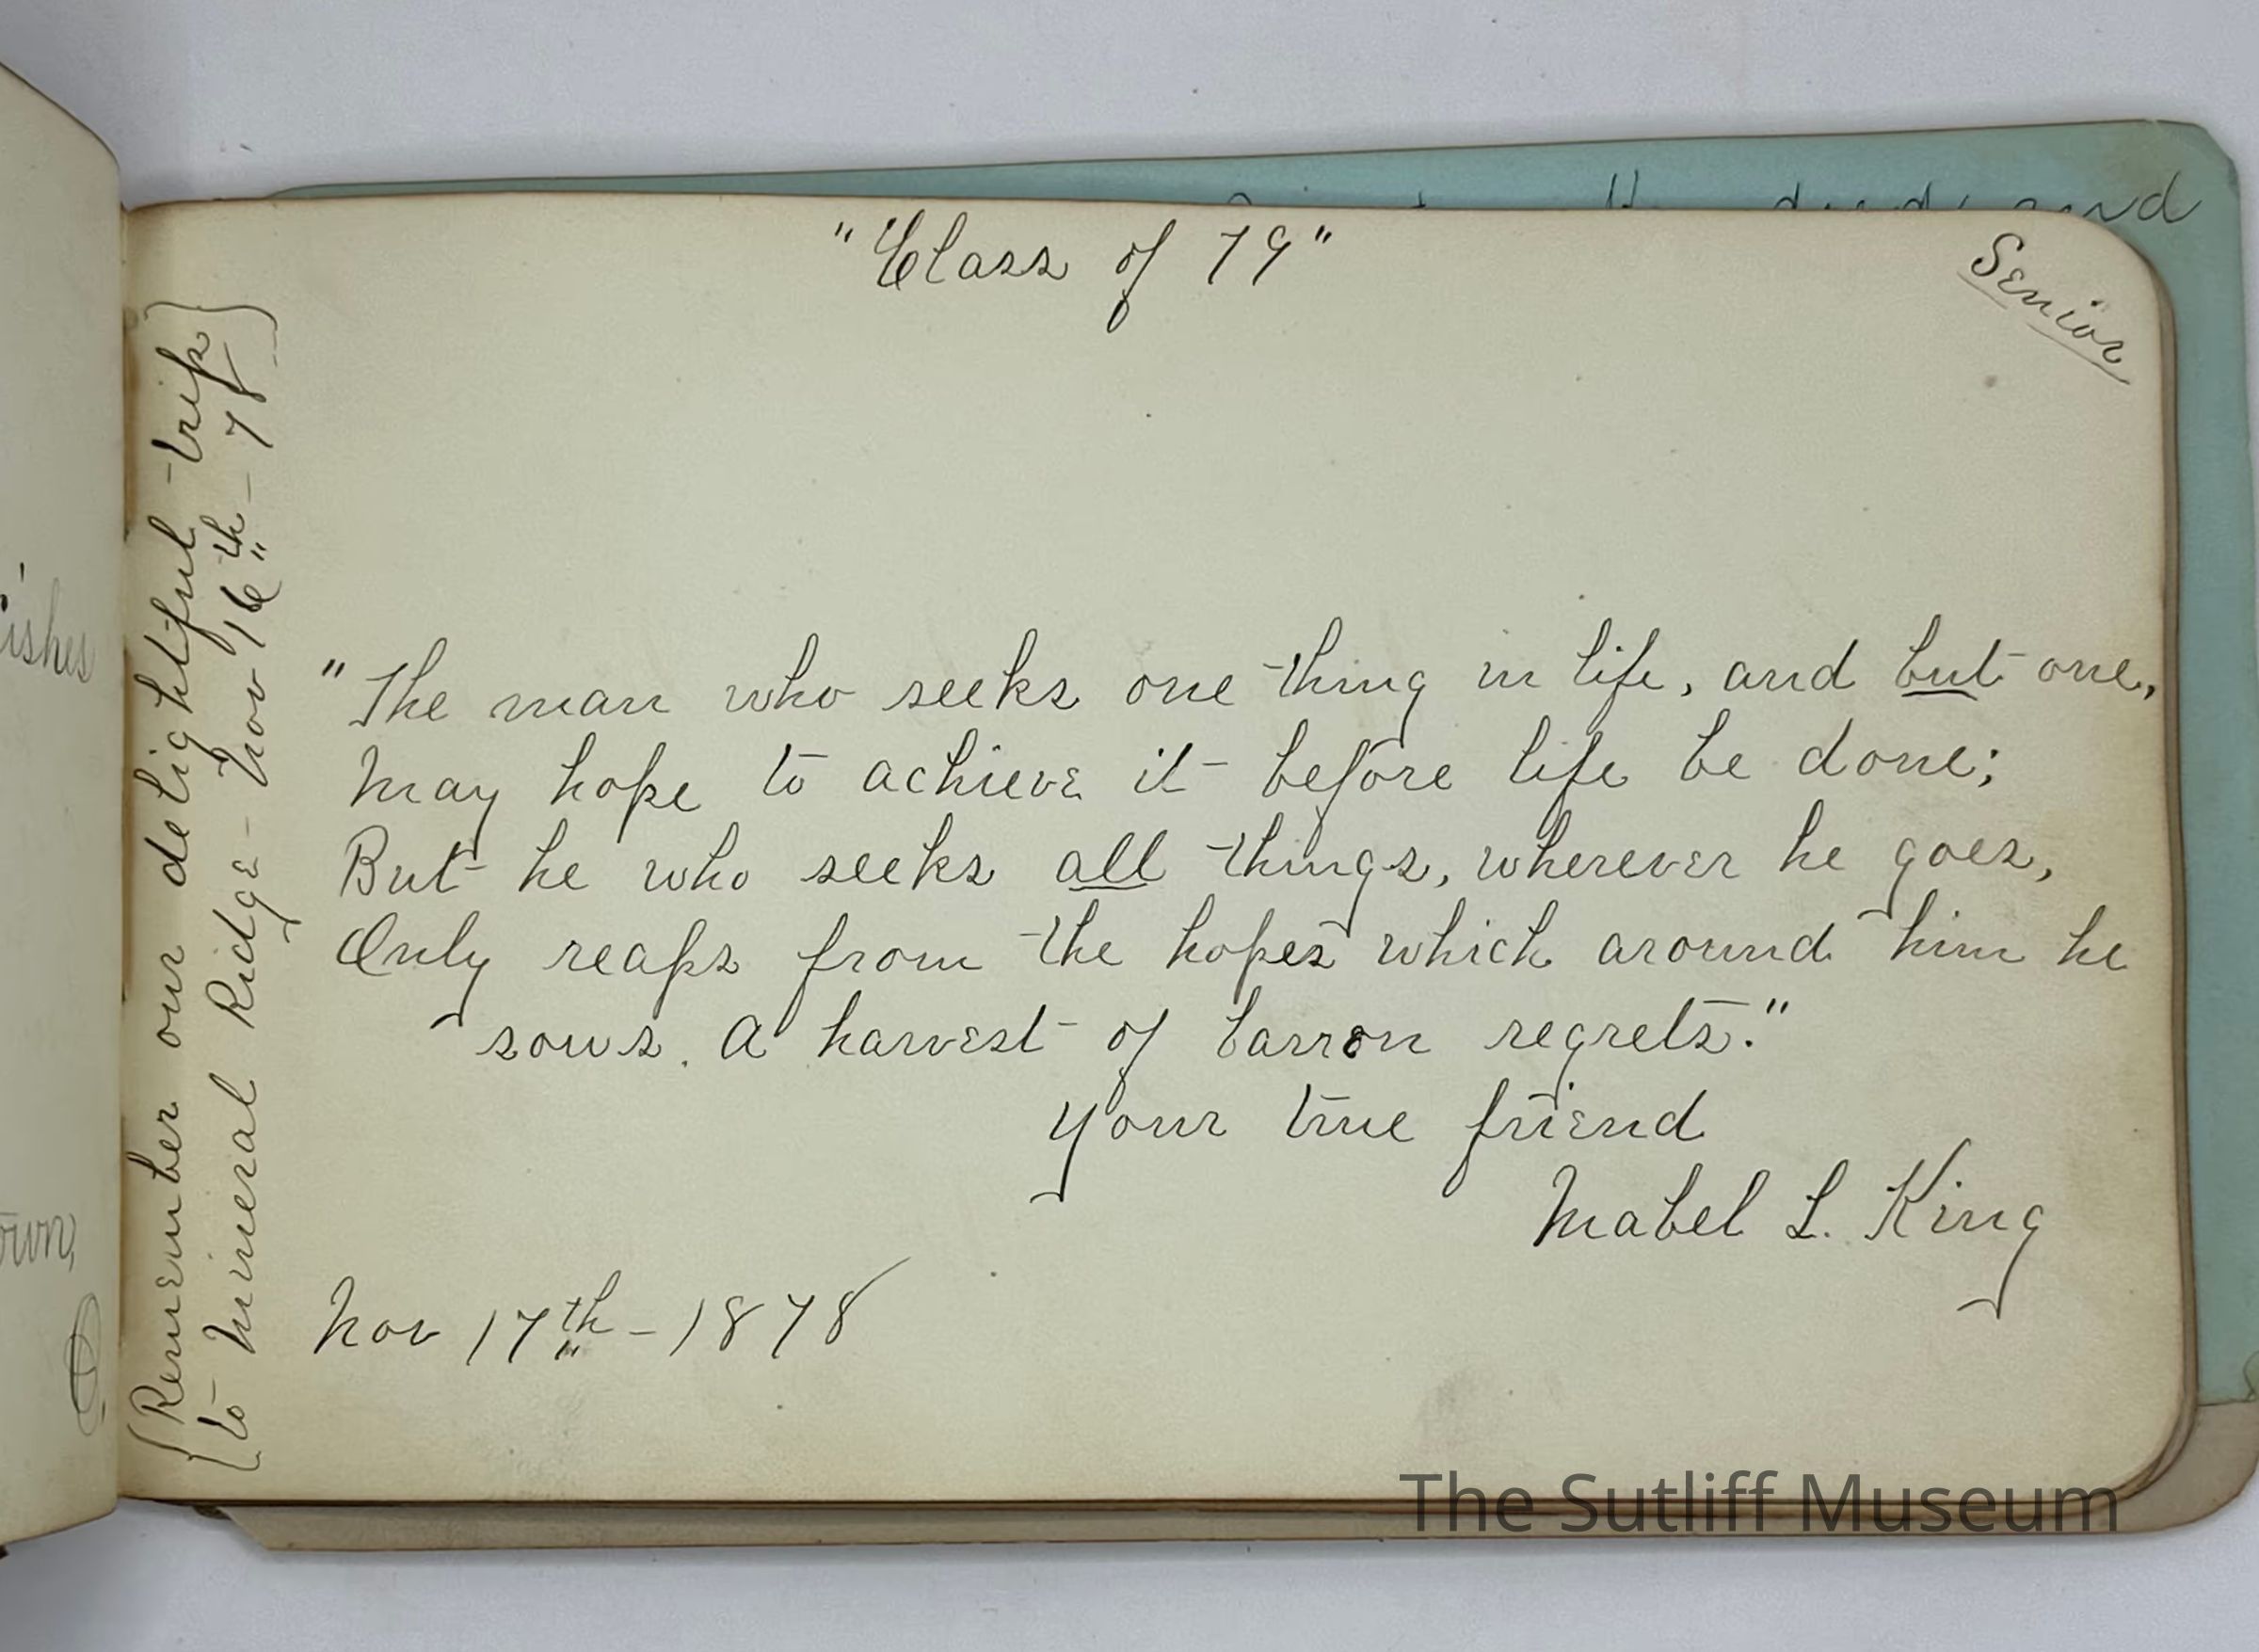 "Class of 79"
Senior
{Remember our delightful trip}
{to Mineral Ridge - Nov 16th - 78}
"The man who seeks one thing in life, and but one,
May hope to achieve it before life be done;
But he who seeks all things, wherever he goes,
Only reaps from the hopes which around him he
sows. A harvest of barron regrets."
Your true friend
Mabel L. King
Nov 17th - 1878
ishes
own,
and
The Sutliff Museum